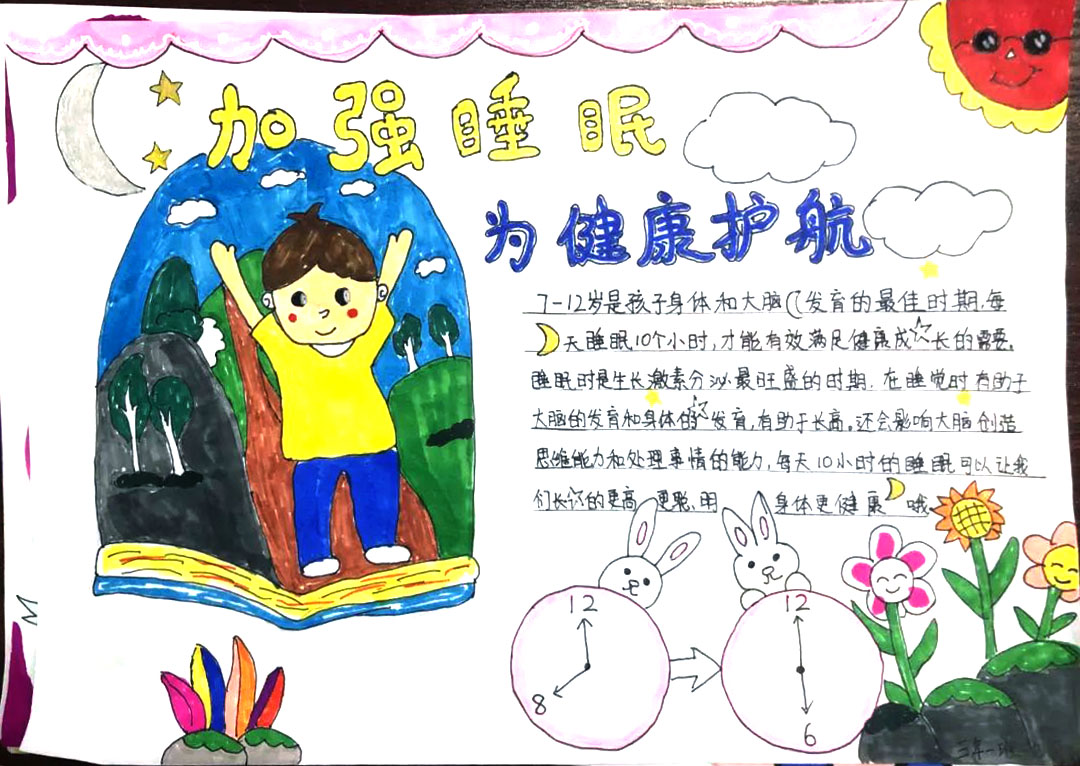 加强睡眠
为健康护航
7-12岁是孩子身体和大脑发育的最佳时期.每
天睡眠10个小时,才能有效满足健康成长的需要。
睡眠时是生长激素分泌最旺盛的时期.在睡觉时有助于
大脑的发育和身体的发育,有助于长高。还会影响大脑创造
思维能力和处理事情的能力,每天10小时的睡眠可以让我
们长的更高 更聪明 身体更健康 哦
12
8
12
6
三年一班